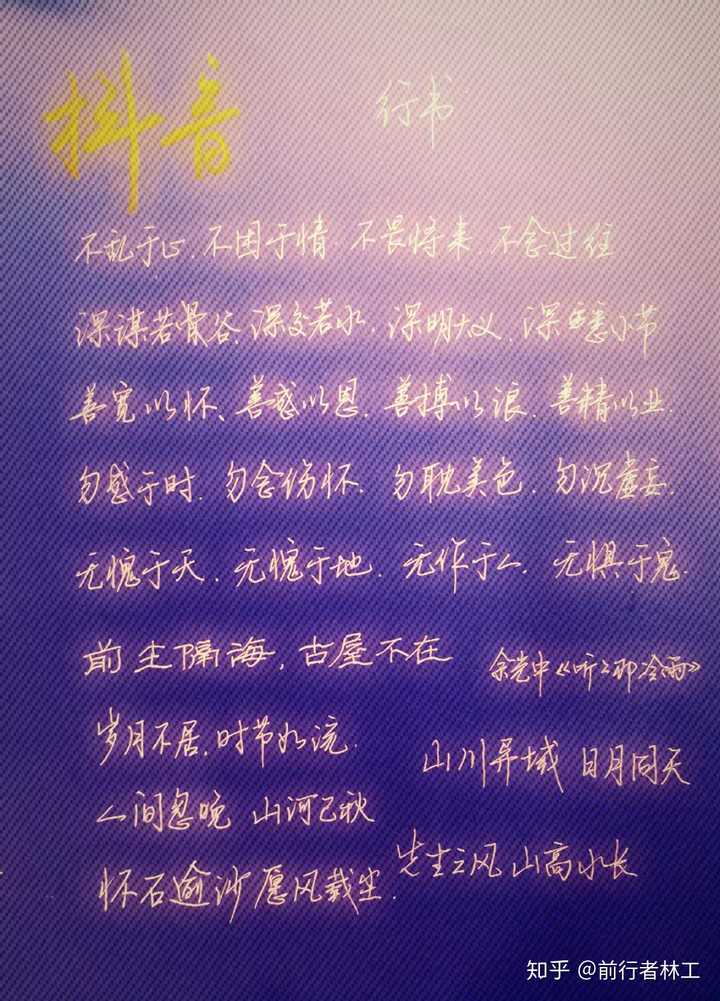 抖音 行书
不乱于心.不困于情.不畏将来.不念过往
深谋若骨谷.深交若水.深明大义.深悉小节
善宽以怀、善感以恩.善博以浪.善精以业.
勿感于时.勿念伤怀.勿耽美色.勿沉虚妄.
无愧于天.无愧于地.无作于人.无惧于鬼.
前尘隔海,古屋不在 余光中《听々那冷雨》
岁月不居.时节如流.
山川异域 日月同天
人间忽晚 山河已秋
先生之风 山高水长
怀石逾沙 愿风载尘.
知乎 @前行者林工